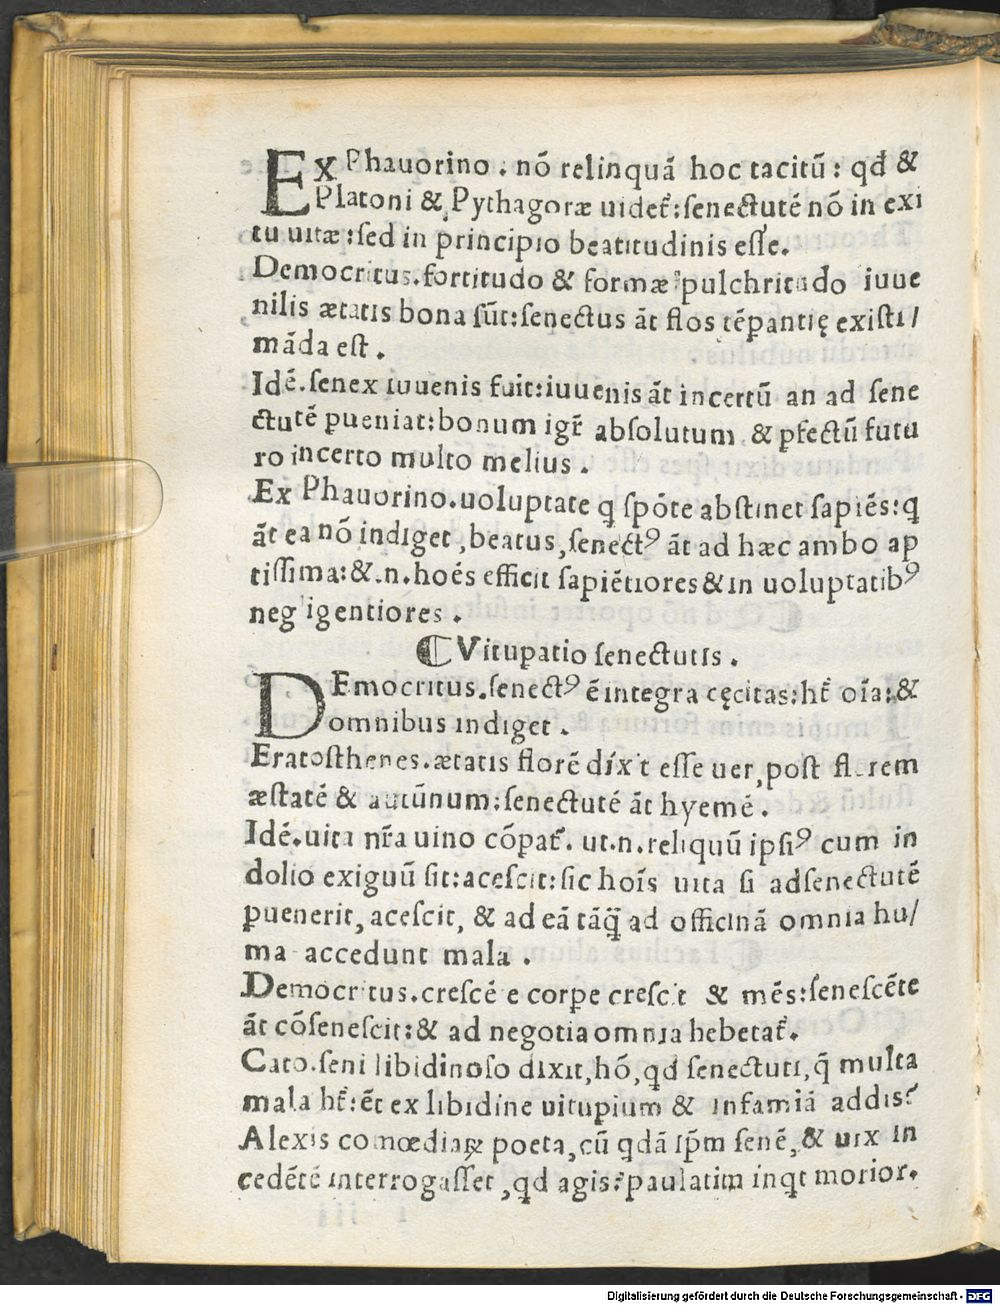 Ex Phauorino. nō relinquā hoc tacitū: qđ &
Platoni & Pythagoræ uidet᷑: senectutē nō in exi
tu uitæ: sed in principio beatitudinis esse.
Democritus. fortitudo & formæ pulchritudo iuue
nilis ætatis bona sūt: senectus āt flos tēpantię existi/
māda est.
Idē. senex iuuenis fuit: iuuenis āt incertū an ad sene
ctutē pueniat: bonum igr̄ absolutum & pfectū futu
ro incerto multo melius.
Ex Phauorino. uoluptate q spōte abstinet sapiēs: q
āt ea nō indiget, beatus, senectꝰ āt ad hæc ambo ap
tissima: &.n. hoēs efficit sapiētiores & in uoluptatibꝰ
negligentiores.
⁋ Vitupatio senectutis.
DEmocritus. senectꝰ ē integra cęcitas: ht᷑ oīa: &
omnibus indiget.
Eratosthenes. ætatis florē dixit esse uer, post florem
æstatē & autūnum: senectutē āt hyemē.
Idē. uita nr̄a uino cōpat᷑. ut.n. reliquū ipsiꝰ cum in
dolio exiguū sit: acescit: sic hoīs uita si ad senectutē
puenerit, acescit, & ad eā tāq̄ ad officinā omnia hu/
ma accedunt mala.
Democritus. crescē e corpe crescit & mēs: senescēte
āt cōsenescit: & ad negotia omnia hebetat᷑.
Cato. seni libidinoso dixit, hō, qd senectuti, q̄ multa
mala ht᷑: ēt ex libidine uitupium & infamiā addis?
Alexis comœdiaꝝ poeta, cū qdā ip̄m senē, & uix in
cedētē interrogasset, qd agis? paulatim inqt morior.
Digitalisierung gefördert durch die Deutsche Forschungsgemeinschaft - DFG